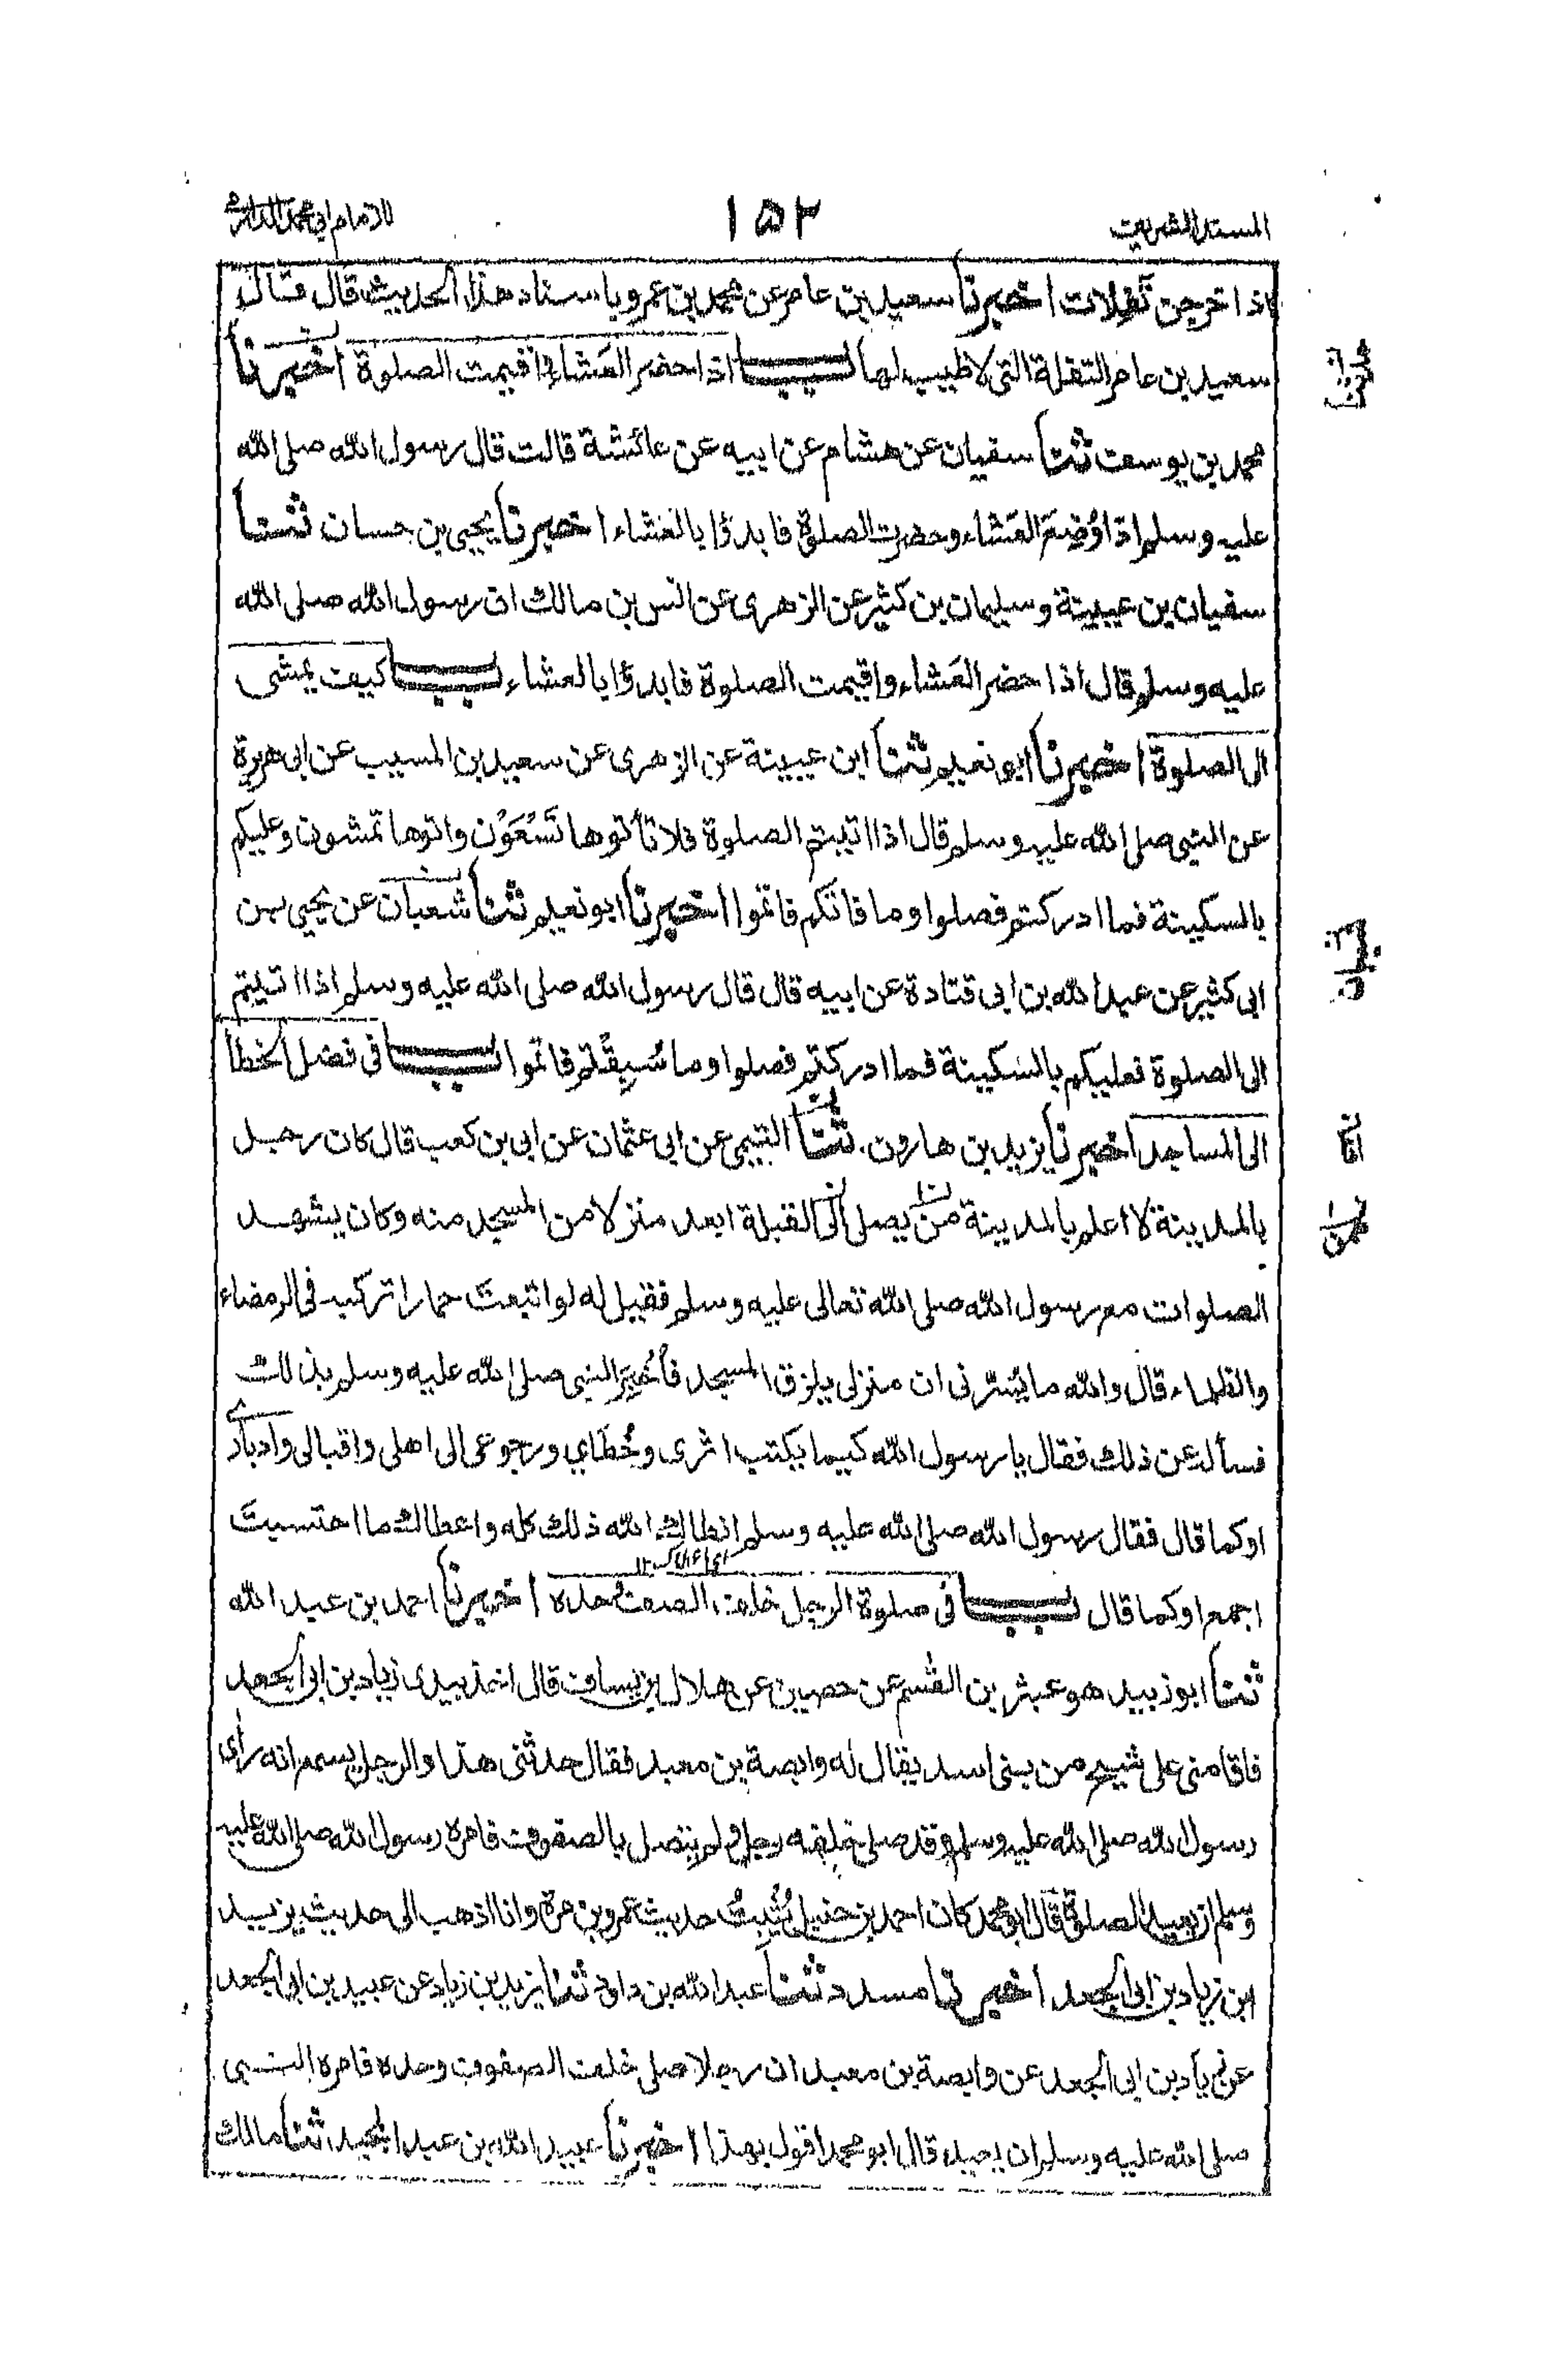 المسند الشريف ١٥٢ للامام ابي محمد الدارمي
اذا خرجن تَفِلات اخبرنا سعيد بن عامر عن محمد بن عمرو باسناد هذا الحديث قال قال
سعيد بن عامر التفلة التى لا طيب لها باب اذا حضر العَشاء واقيمت الصلوة اخبرنا
محمد بن يوسف ثنا سفيان عن هشام عن ابيه عن عائشة قالت قال رسول الله صلى الله
عليه وسلم اذا وُضِعَ العَشاء وحضرت الصلوة فابدؤا بالعَشاء اخبرنا يحيى بن حسان ثنا
سفيان بن عيينة وسليمان بن كثير عن الزهرى عن انس بن مالك ان رسول الله صلى الله
عليه وسلم قال اذا حضر العَشاء واقيمت الصلوة فابدؤا بالعشاء باب كيف يمشى
الى الصلوة اخبرنا ابو نعيم ثنا ابن عيينة عن الزهرى عن سعيد بن المسيب عن ابى هريرة
عن النبى صلى الله عليه وسلم قال اذا اتيتم الصلوة فلا تأتوها تَسْعَوْن واتوها تمشون وعليكم
بالسكينة فما ادركتم فصلوا وما فاتكم فاتموا اخبرنا ابو نعيم ثنا شعبان عن يحيى بن
ابى كثير عن عبد الله بن ابى قتادة عن ابيه قال قال رسول الله صلى الله عليه وسلم اذا اتيتم
الى الصلوة فعليكم بالسكينة فما ادركتم فصلوا وما سُبِقْتم فاتموا باب فى فضل الخطا
الى المساجد اخبرنا يزيد بن هارون ثنا التيمى عن ابى عثمان عن ابى بن كعب قال كان رجل
بالمدينة لا اعلم بالمدينة من يصلى الى القبلة ابعد منزلا من المسجد منه وكان يشهد
الصلوات مع رسول الله صلى الله تعالى عليه وسلم فقيل له لو ابتعت حمارا تركب فى الرمضاء
والظلماء قال والله ما يَسُرّنى ان منزلى بلزق المسجد فأُخبِرَ النبى صلى الله عليه وسلم بذلك
فسأله عن ذلك فقال يا رسول الله كيما يكتب اثرى وخُطَاي ورجوعى الى اهلى واقبالى وادبارى
او كما قال فقال رسول الله صلى الله عليه وسلم انطاك الله ذلك كله واعطاك ما احتسبتَ
اجمع او كما قال باب فى صلوة الرجل خلف الصف وحده اخبرنا احمد بن عبد الله
ثنا ابو زبيد هو عبثر بن القسم عن حصين عن هلال بن يساف قال اخذ بيدى زياد بن ابى الجعد
فاقامنى على شيخ من بنى اسد يقال له وابصة بن معبد فقال حدثنى هذا والرجل يسمع انه رأى
رسول الله صلى الله عليه وسلم وقد صلى خلفه رجل ولم يتصل بالصفوف فامره رسول الله صلى الله عليه
وسلم ان يعيد الصلوة قال ابو محمد كان احمد بن حنبل يُثْبِتُ حديث عمرو بن مرة وانا اذهب الى حديث يزيد
ابن زياد بن ابى الجعد اخبرنا مسدد ثنا عبد الله بن داود ثنا يزيد بن زياد عن عبيد بن ابى الجعد
عن زياد بن ابى الجعد عن وابصة بن معبد ان رجلا صلى خلف الصفوف وحده فامره النبى
صلى الله عليه وسلم ان يعيد قال ابو محمد اقول بهذا اخبرنا عبيد الله بن عبد المجيد ثنا مالك